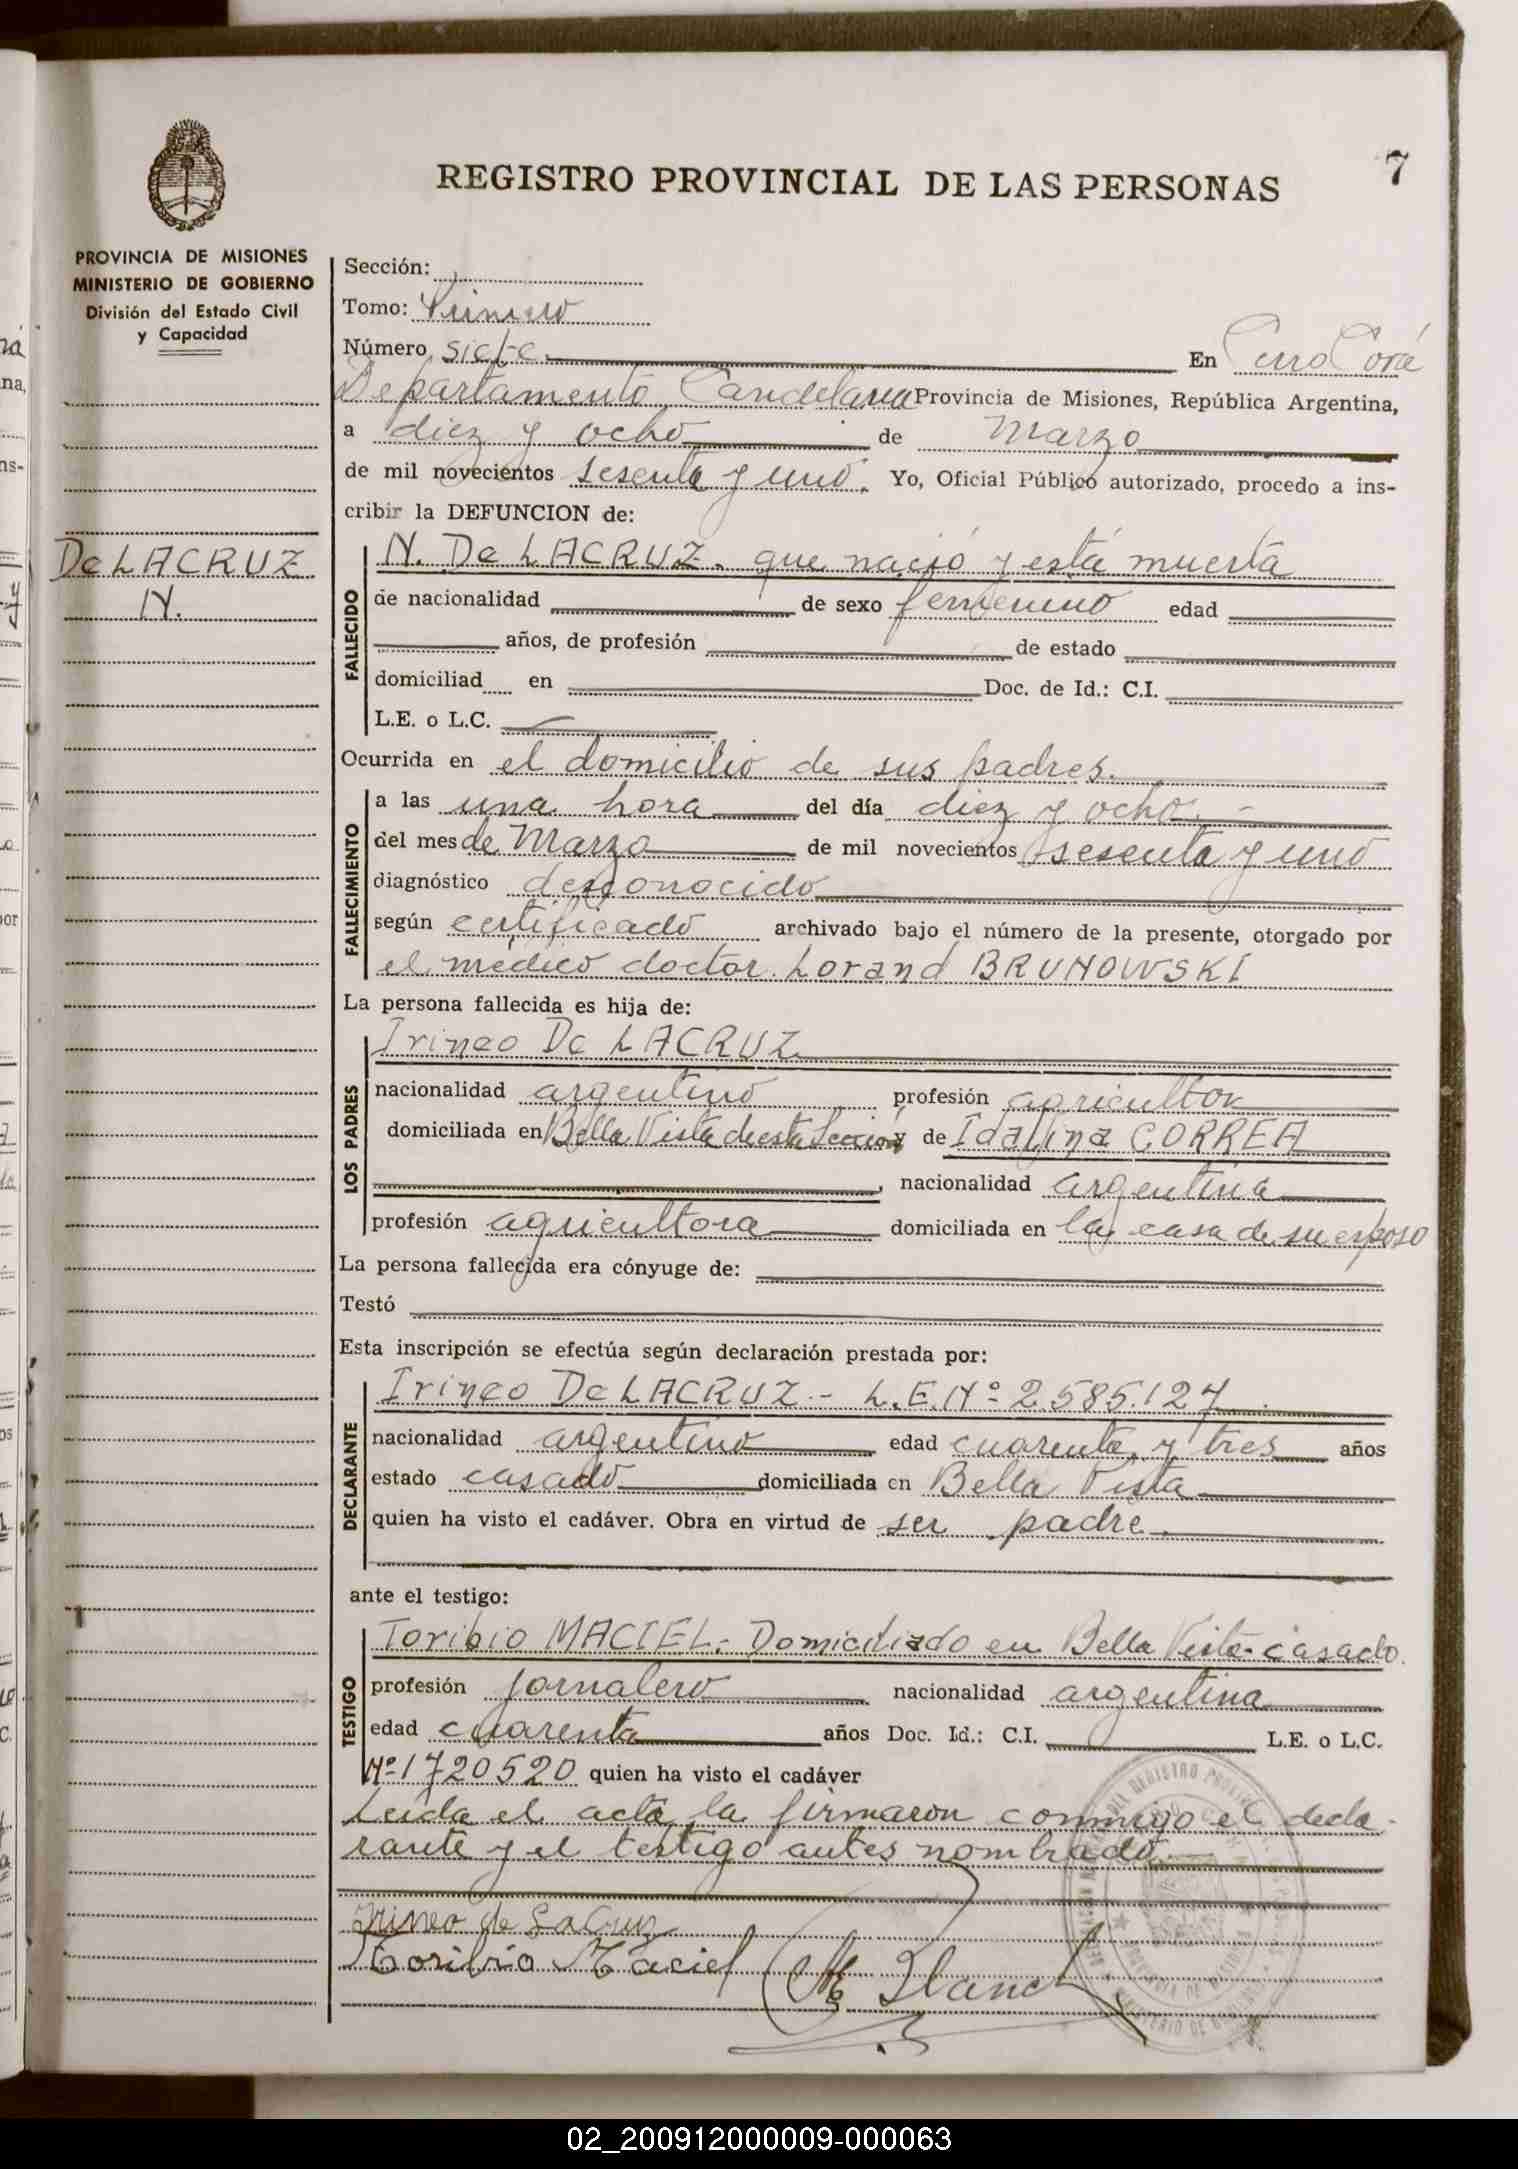 7
REGISTRO PROVINCIAL DE LAS PERSONAS
PROVINCIA DE MISIONES
MINISTERIO DE GOBIERNO
División del Estado Civil
y Capacidad
De LACRUZ
N.
Sección:
Tomo: Primero
Número siete En Cerro Corá
Departamento Candelaria Provincia de Misiones, República Argentina,
a diez y ocho de Marzo
de mil novecientos sesenta y uno. Yo, Oficial Público autorizado, procedo a ins-
cribir la DEFUNCION de:
FALLECIDO
N. De LACRUZ. que nació y está muerta
de nacionalidad de sexo femenino edad
años, de profesión de estado
domiciliad en Doc. de Id.: C.I.
L.E. o L.C.
Ocurrida en el domicilio de sus padres.
FALLECIMIENTO
a las una hora del día diez y ocho.-
del mes de Marzo de mil novecientos sesenta y uno
diagnóstico desconocido
según certificado archivado bajo el número de la presente, otorgado por
el médico doctor Lorand BRUNOWSKI
La persona fallecida es hija de:
LOS PADRES
Irineo De LACRUZ
nacionalidad argentino profesión agricultor
domiciliada en Bella Vista de esta Sección y de Idalina CORREA
, nacionalidad argentina
profesión agricultora domiciliada en la casa de su esposo
La persona fallecida era cónyuge de:
Testó
Esta inscripción se efectúa según declaración prestada por:
DECLARANTE
Irineo De LACRUZ.- L.E.Nº 2.585.127
nacionalidad argentino edad cuarenta y tres años
estado casado domiciliada en Bella Vista
quien ha visto el cadáver. Obra en virtud de ser padre.
ante el testigo:
TESTIGO
Toribio MACIEL.- Domiciliado en Bella Vista- casado.
profesión jornalero nacionalidad argentina
edad cuarenta años Doc. Id.: C.I. L.E. o L.C.
Nº 1720520 quien ha visto el cadáver
Leída el acta la firmaron conmigo el decla-
rante y el testigo antes nombrado.
Irineo de La Cruz
Toribio Maciel
02_200912000009-000063